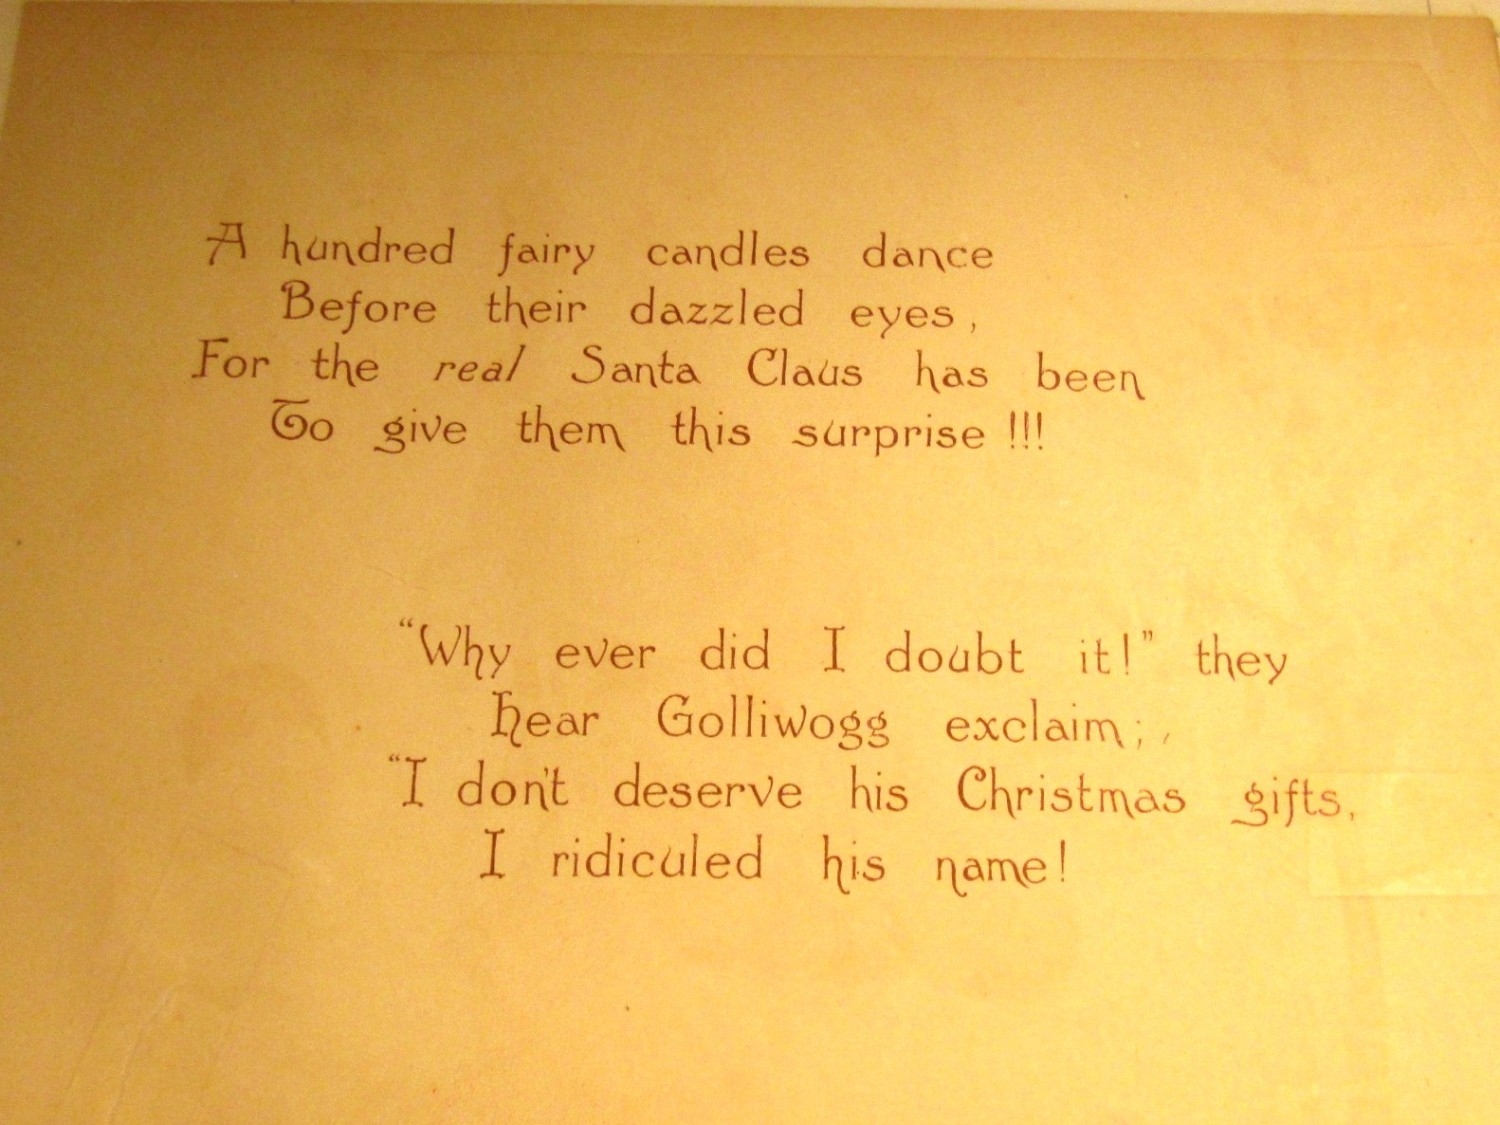 A hundred fairy candles dance
Before their dazzled eyes,
For the real Santa Claus has been
To give them this surprise !!!
“Why ever did I doubt it!” they
Hear Golliwogg exclaim;,
“I don't deserve his Christmas gifts,
I ridiculed his name!